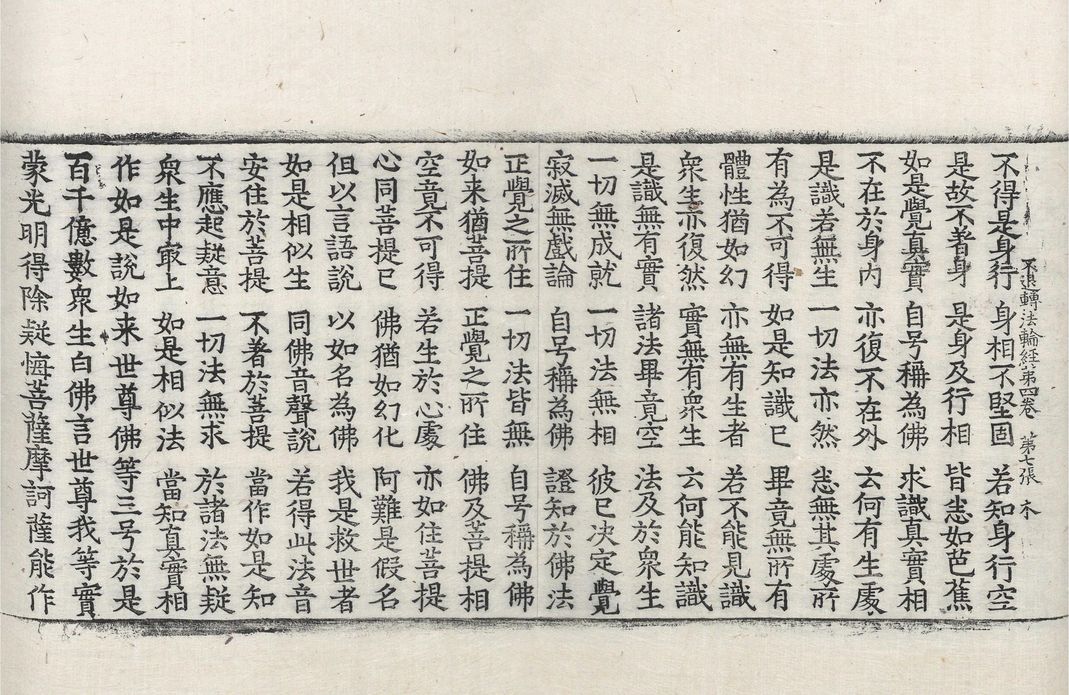 不退轉法輪經第四卷 第七張 木
不得是身行 身相不堅固 若知身行空
是故不著身 是身及行相 皆悉如芭蕉
如是覺真實 自号稱為佛 求識真實相
不在於身內 亦復不在外 云何有生處
是識若無生 一切法亦然 悉無其處所
有為不可得 如是知識已 畢竟無所有
體性猶如幻 亦無有生者 若不能見識
衆生亦復然 實無有衆生 云何能知識
是識無有實 諸法畢竟空 法及於衆生
一切無成就 一切法無相 彼已決定覺
寂滅無戲論 自号稱為佛 證知於佛法
正覺之所住 一切法皆無 自号稱為佛
如来猶菩提 正覺之所住 佛及菩提相
空竟不可得 若生於心處 亦如住菩提
心同菩提已 佛猶如幻化 阿難是假名
但以言語說 以如名為佛 我是救世者
如是相似生 同佛音聲說 若得此法音
安住於菩提 不著於菩提 當作如是知
不應起疑意 一切法無求 於諸法無疑
衆生中冣上 如是相似法 當知真實相
作如是說如来世尊佛等三号於是
百千億數衆生白佛言世尊我等實
蒙光明得除疑悔菩薩摩訶薩能作